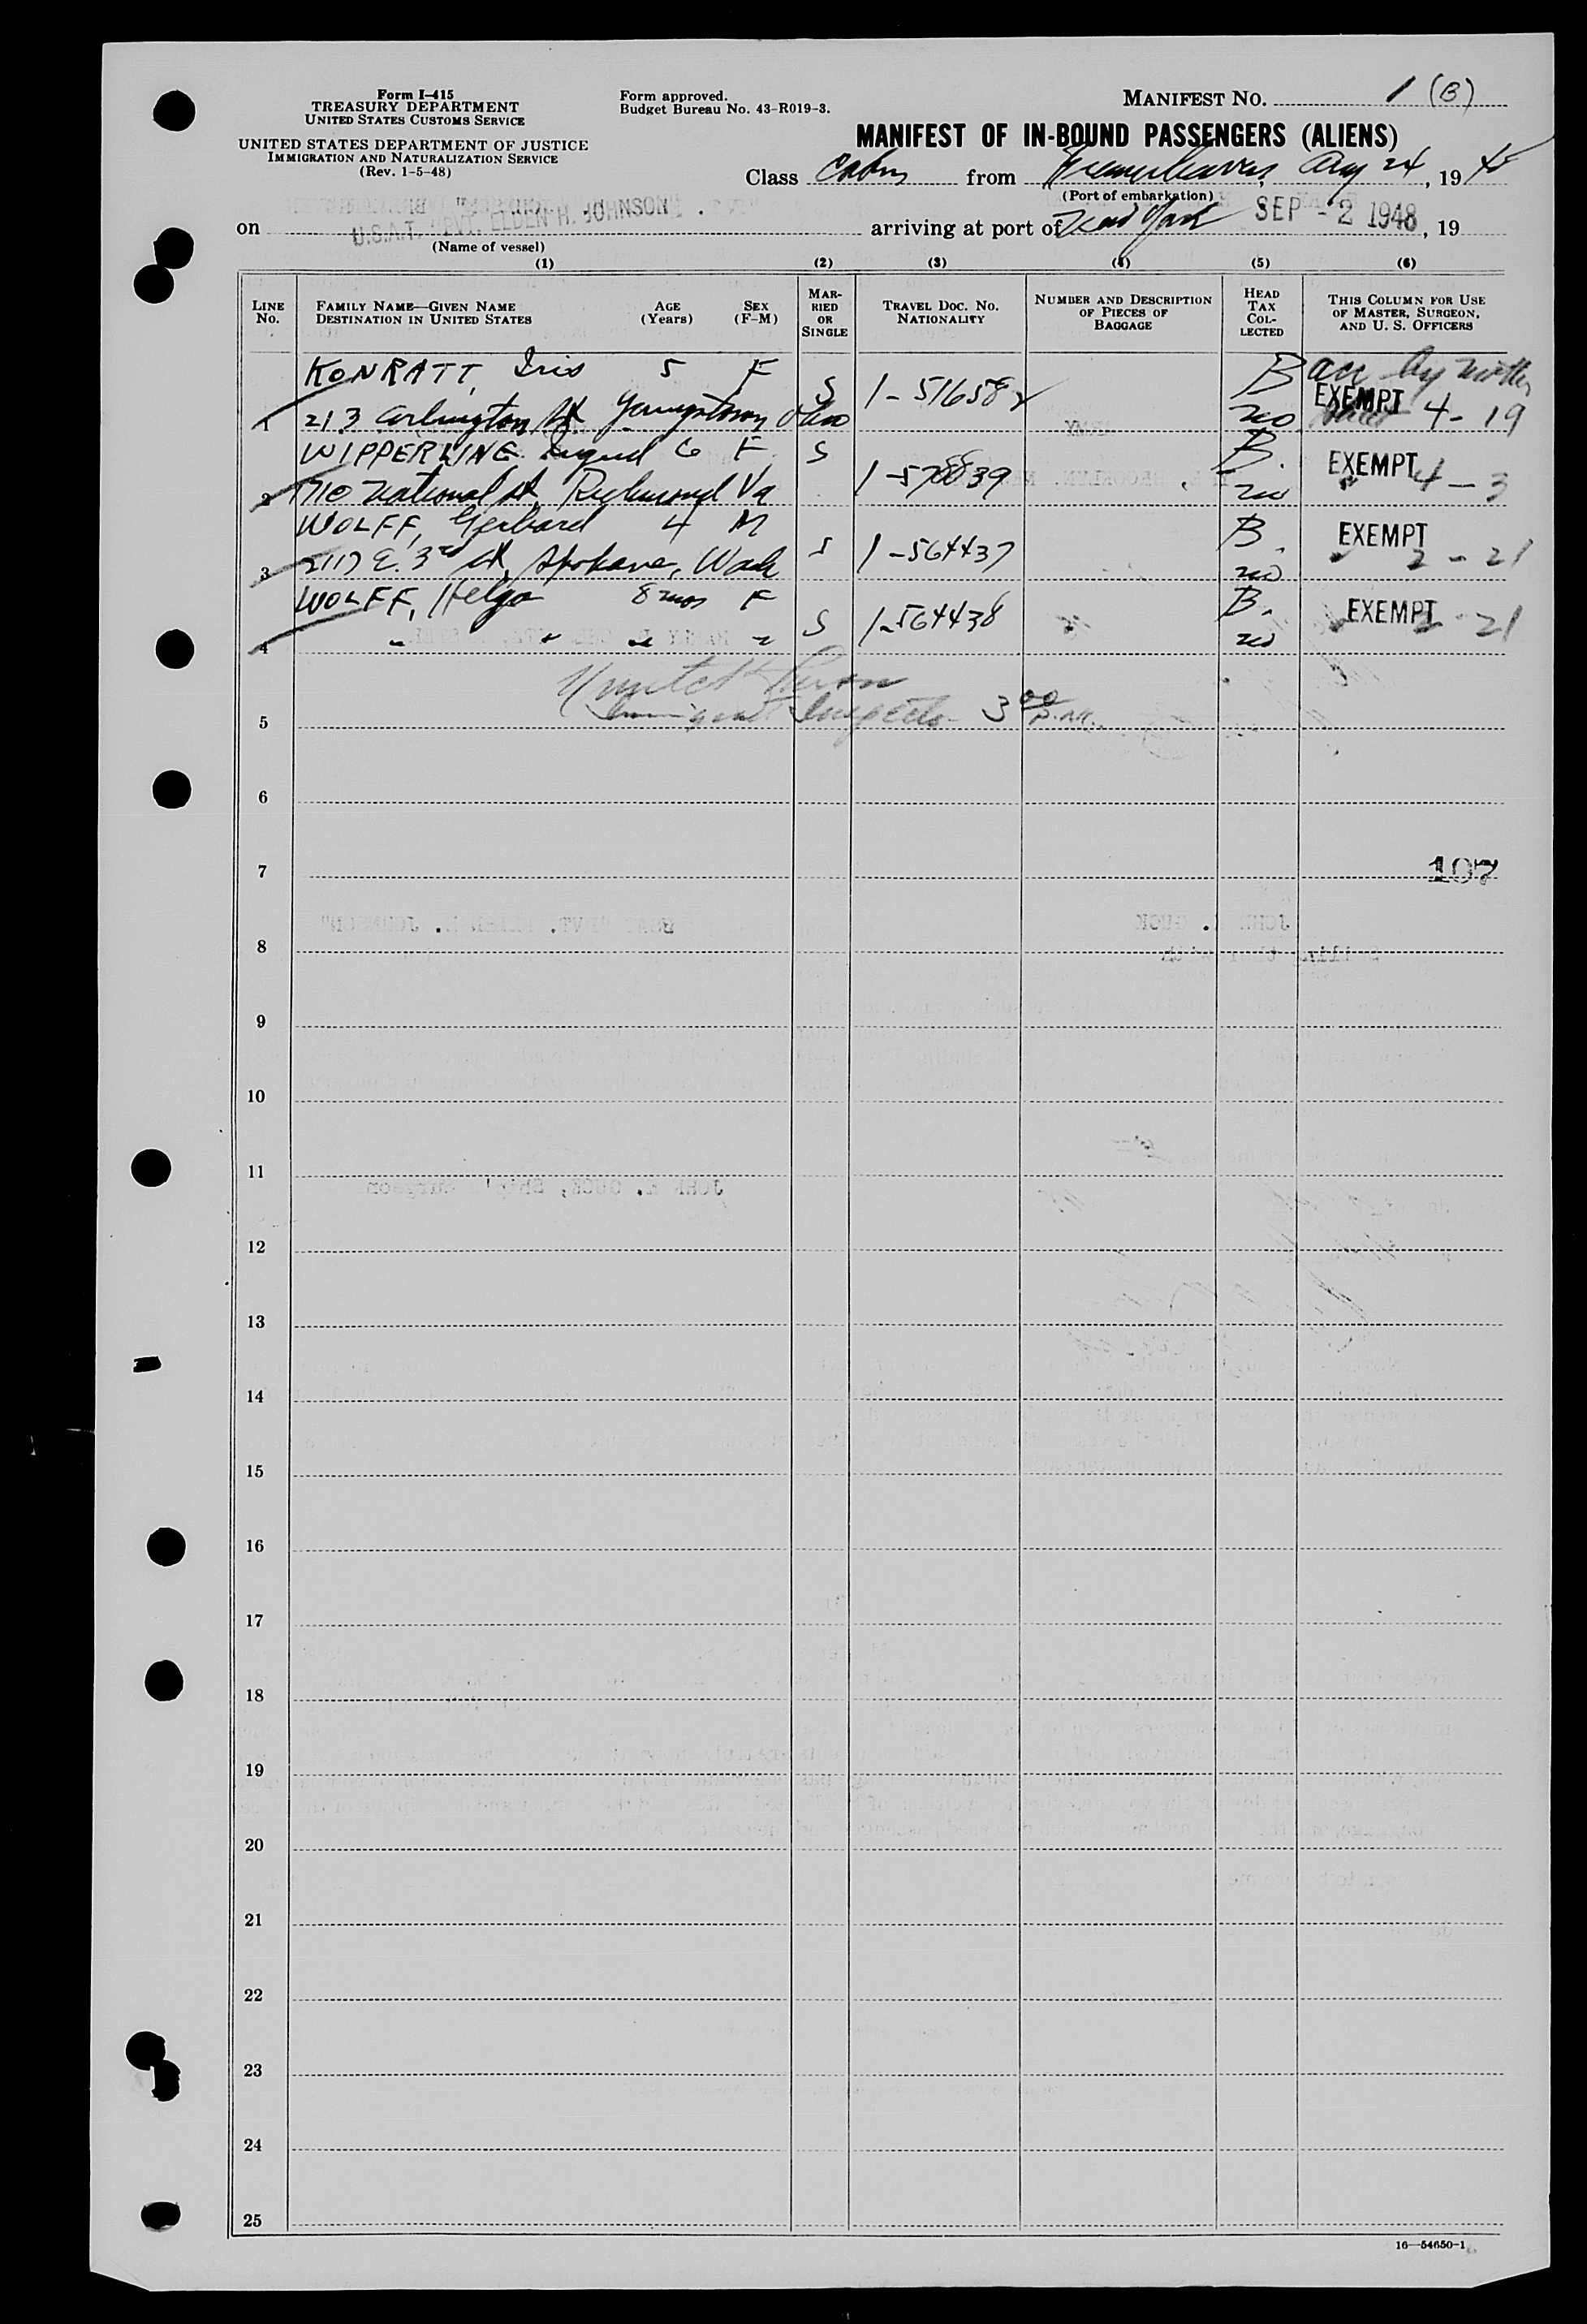 Form I-415
TREASURY DEPARTMENT
UNITED STATES CUSTOMS SERVICE
UNITED STATES DEPARTMENT OF JUSTICE
IMMIGRATION AND NATURALIZATION SERVICE
(Rev. 1-5-48)
Form approved.
Budget Bureau No. 43-R019-3.
MANIFEST NO. 1 (B)
MANIFEST OF IN-BOUND PASSENGERS (ALIENS)
Class Cabin from Bremerhaven, Aug 24, 1948
(Port of embarkation)
on U.S.A.T. PVT. ELDEN H. JOHNSON arriving at port of New York SEP - 2 1948, 19
(Name of vessel)
(1) (2) (3) (4) (5) (6)
LINE No.
FAMILY NAME—GIVEN NAME
DESTINATION IN UNITED STATES
AGE (Years)
SEX (F-M)
MARRIED OR SINGLE
TRAVEL DOC. NO. NATIONALITY
NUMBER AND DESCRIPTION OF PIECES OF BAGGAGE
HEAD TAX COLLECTED
THIS COLUMN FOR USE OF MASTER, SURGEON, AND U. S. OFFICERS
KONRATT, Iris 5 F S 1-516582 B acc by mother
1 213 Arlington St Youngstown Ohio no EXEMPT 4-19
WIPPERLING 6 F S B.
2 710 National St, Richmond Va 1-578839 no EXEMPT 4-3
WOLFF, Gerhard 4 M B. EXEMPT
3 2117 E. 3rd St, Spokane, Wash S 1-564437 no 2-21
WOLFF, Helga 8 mos F B. EXEMPT
4 " " " " S 1-564438 no 2-21
Immigrant Inspector 3 00 P.M.
5
6
7 107
8
9
10
11
12
13
14
15
16
17
18
19
20
21
22
23
24
25
16—54650-1